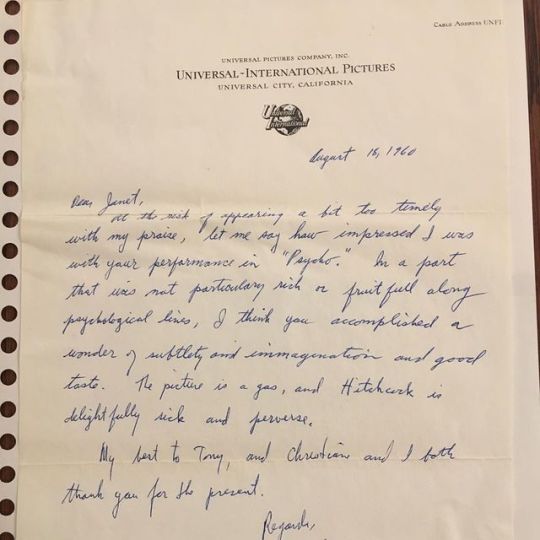 Cable Address UNFI
UNIVERSAL PICTURES COMPANY, INC.
UNIVERSAL-INTERNATIONAL PICTURES
UNIVERSAL CITY, CALIFORNIA
Universal
International
August 18, 1960
Dear Janet,
At the risk of appearing a bit too timely
with my praise, let me say how impressed I was
with your performance in "Psycho." In a part
that was not particulary rich or fruitfull along
psychological lines, I think you accomplished a
wonder of subtlety and immagination and good
taste. The picture is a gas, and Hitchcock is
delightfully sick and perverse.
My best to Tony, and Christiane and I both
thank you for the present.
Regards,